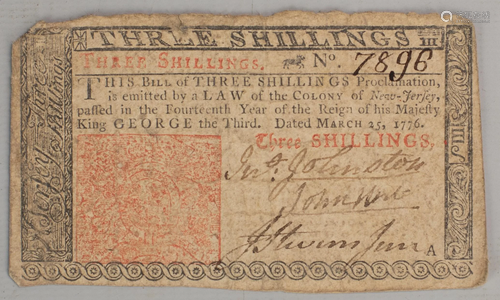 THREE SHILLINGS III
THREE SHILLINGS. No. 7896
THIS BILL of THREE SHILLINGS Proclamation,
is emitted by a LAW of the COLONY of New-Jersey,
passed in the Fourteenth Year of the Reign of his Majesty
King GEORGE the Third. Dated MARCH 25, 1776.
Three SHILLINGS,
Jno. Johnston
John
J Stevens Junr
A
Jersey Three
Shillings
III